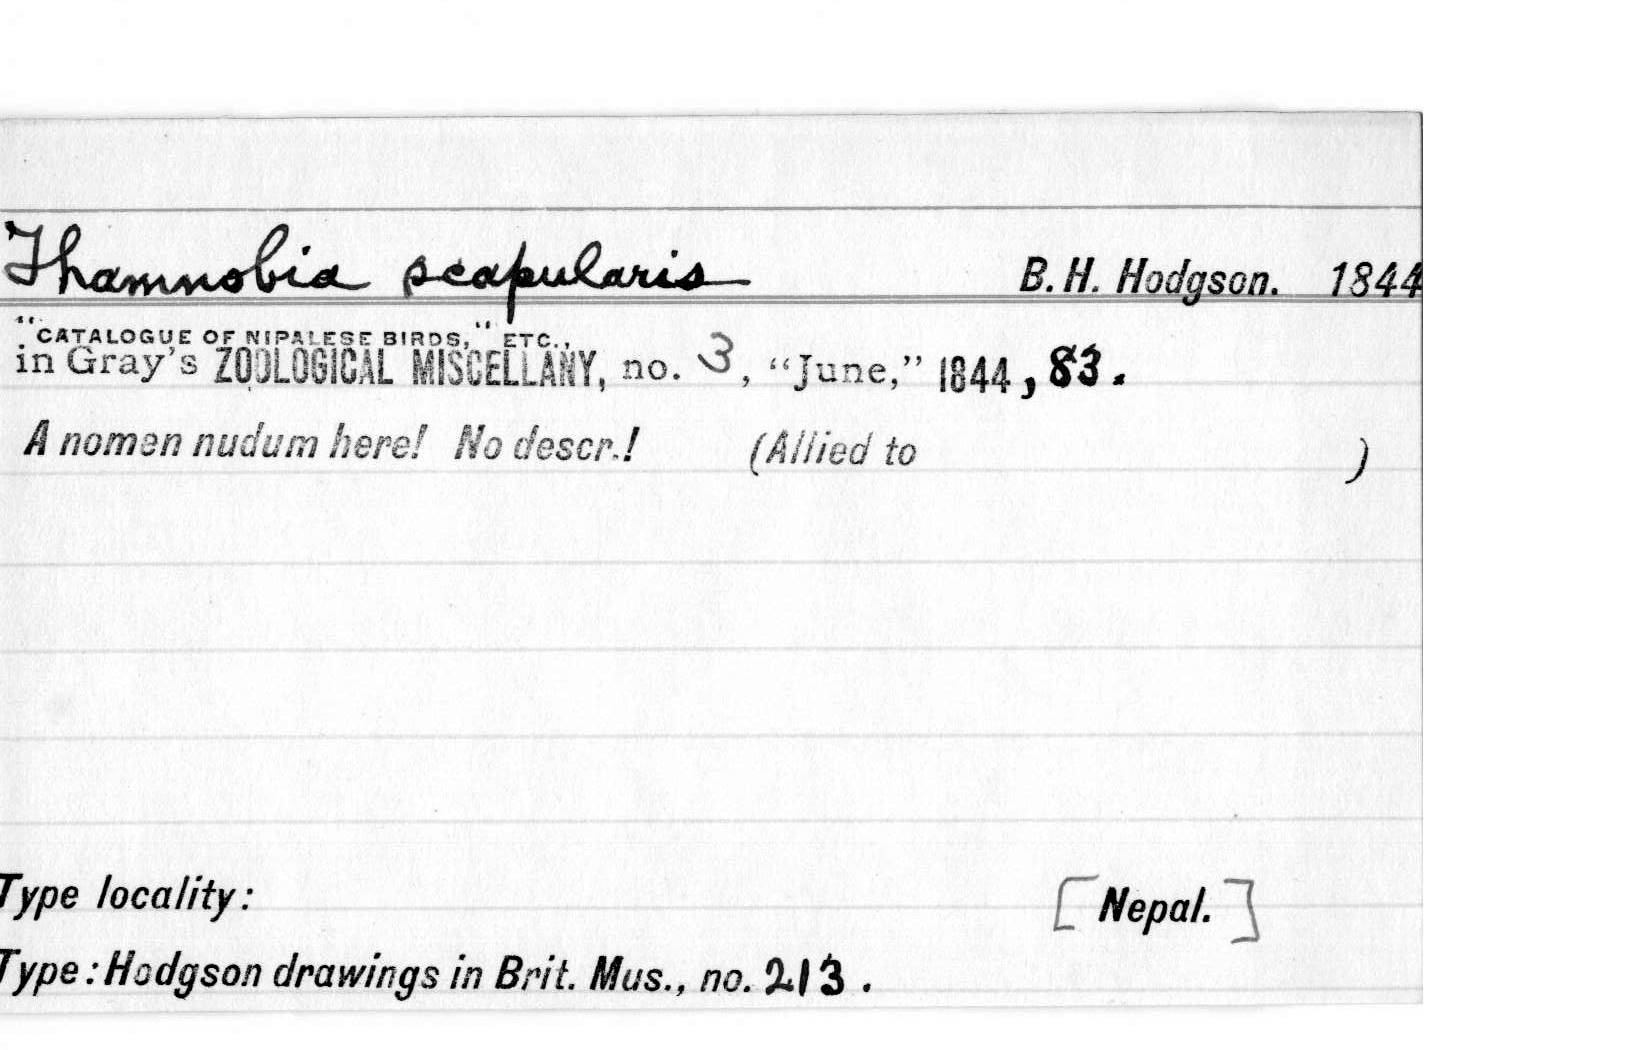 Thamnobia scapularis B. H. Hodgson. 1844
"CATALOGUE OF NIPALESE BIRDS," ETC.,
in Gray's ZOOLOGICAL MISCELLANY, no. 3, "June," 1844, 83.
A nomen nudum here! No descr.! (Allied to )
Type locality: [Nepal.]
Type: Hodgson drawings in Brit. Mus., no. 213.